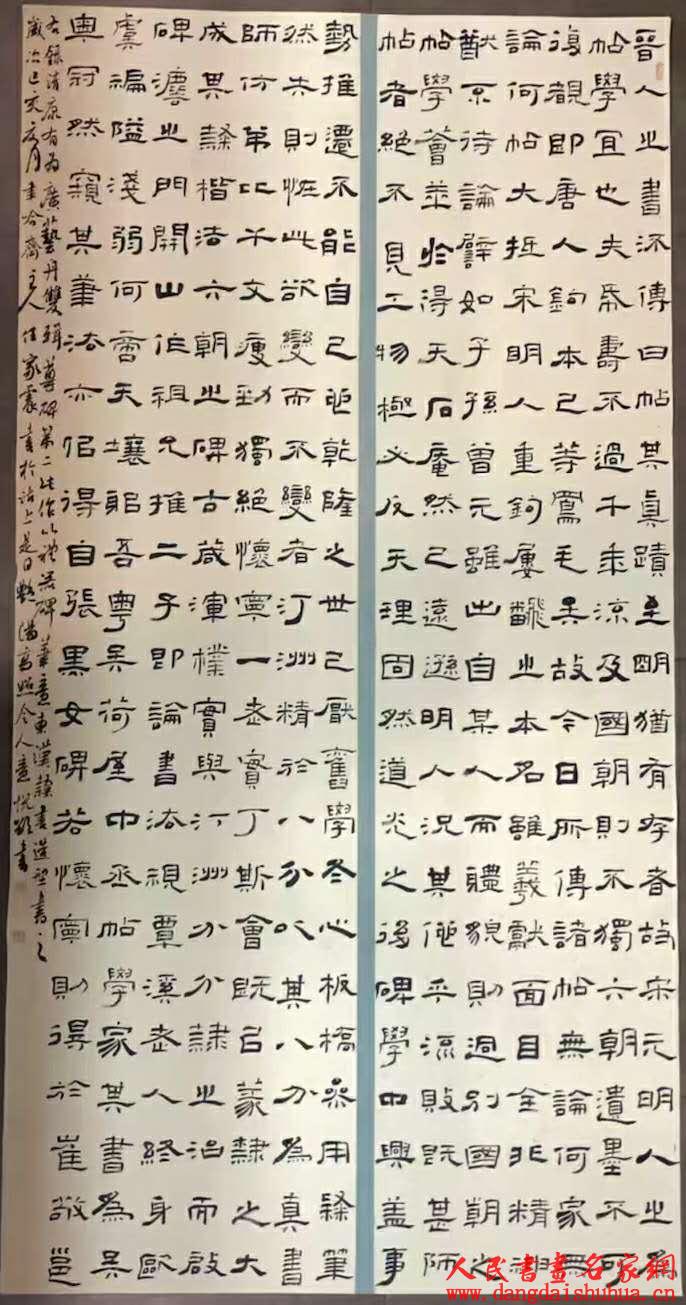 晉人之書流傳曰帖其真蹟至明猶有存者故宋元明人之為
帖學宜也夫帋壽不過千年流及國朝則不獨六朝遺墨不可
復覩即唐人鉤本已等鳳毛矣故今日所傳諸帖無論何家無
論何帖大抵宋明人重鉤屢翻之本名雖羲獻面目全非精神
猷不待論譬如子孫曾元雖出自某人而體貌則迥別國朝之
帖學薈萃於得天石庵然已遠遜明人況其他乎流敗既甚師
帖者絕不見工物極必反天理固然道光之後碑學中興蓋事
勢推遷不能自已也乾隆之世已厭舊學冬心板橋參用隸筆
然失則怪此欲變而不變者汀洲精於八分以其八分為真書
師仿弔比干文瘦勁獨絕懷寧一老實丁斯會既以篆隸之大
成其隸楷法六朝之碑古茂渾樸實與汀洲分分隸之治而啟
碑灋之門開山作祖允推二子即論書法視覃溪老人終身歐
虞褊隘淺弱何啻天壤耶吾粵吳荷屋中丞帖學家其書為吳
粵冠然窺其筆法亦似得自張黑女碑若懷寧則得於崔敬邕
右錄清康有為廣藝舟雙楫尊碑第二此作以禮器碑筆意東漢隸書書之
歲次己亥月齋主人任家震書於沽上是日艷陽高照令人意悅書
人民書畫名家網
www.dangdaishuhua.cn